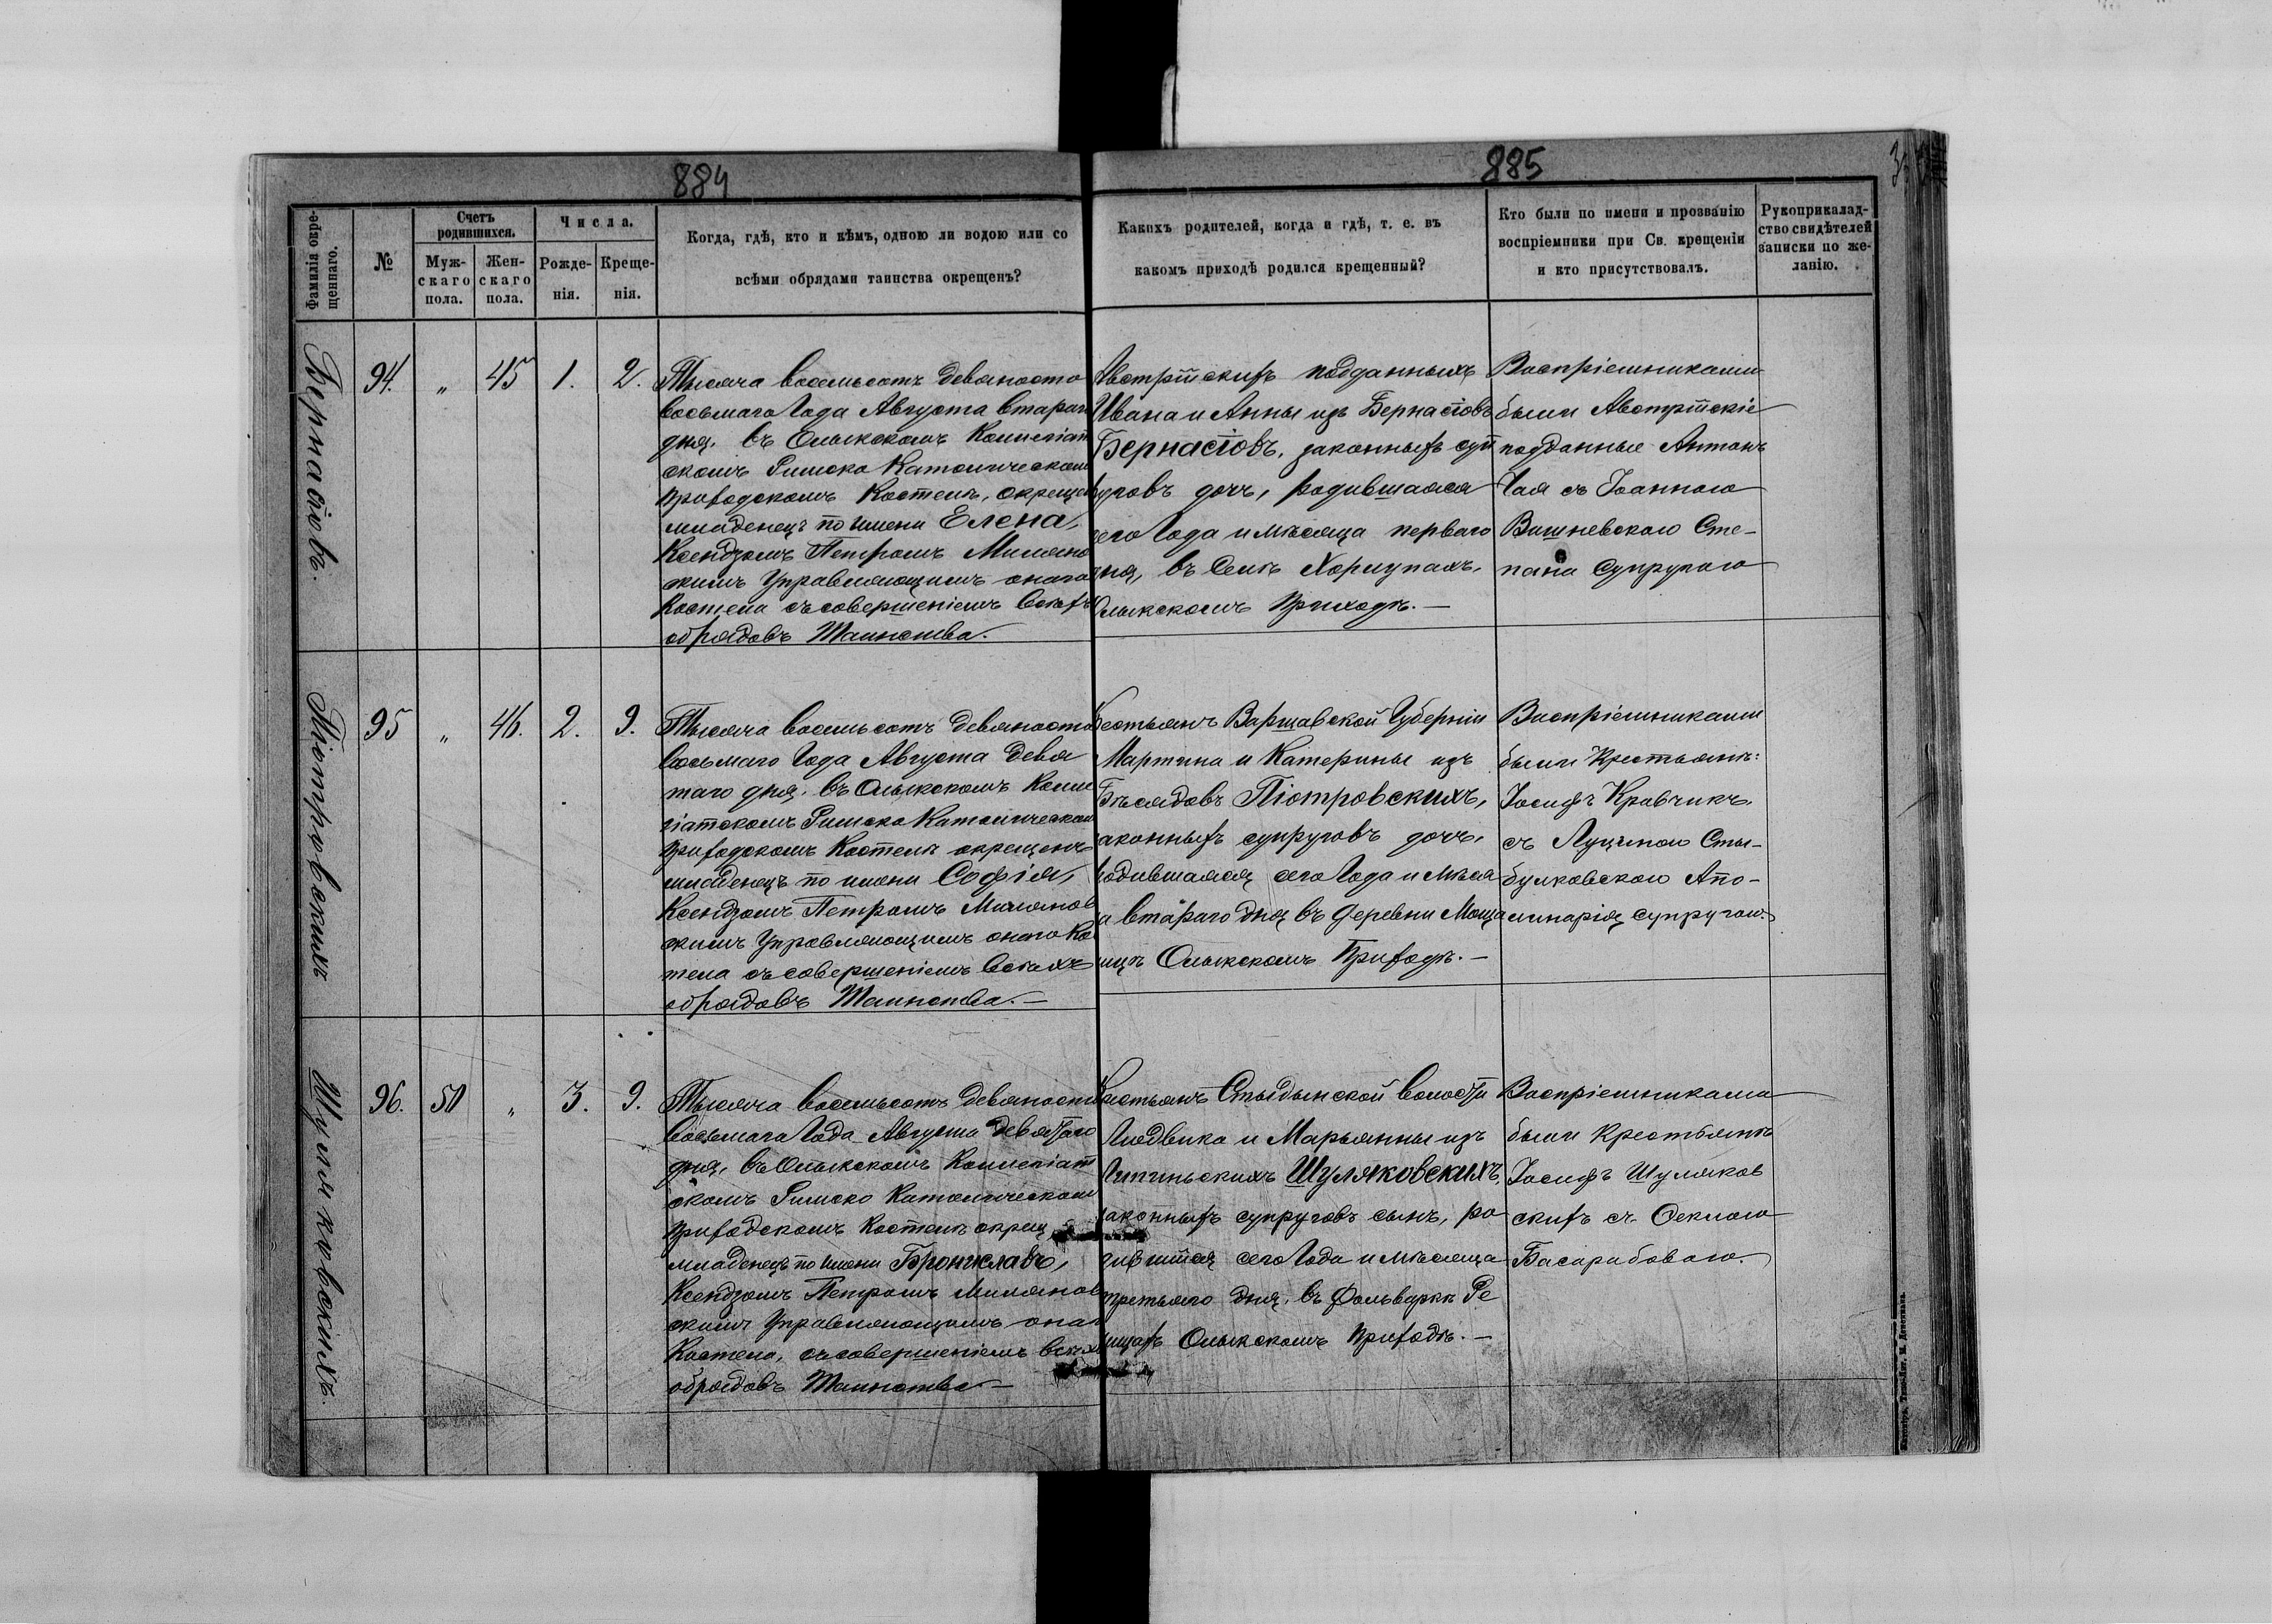 884
885
Фамилія окре-
щеннаго.
№
Счетъ
родившихся.
Муж-
скаго
пола.
Жен-
скаго
пола.
Числа.
Рожде-
нія.
Креще-
нія.
Когда, гдѣ, кто и кѣмъ, одною ли водою или со
всѣми обрядами таинства окрещенъ?
Какихъ родителей, когда и гдѣ, т. е. въ
какомъ приходѣ родился крещенный?
Кто были по имени и прозванію
воспріемники при Св. крещеніи
и кто присутствовалъ.
Рукоприкалад-
ство свидѣтелей
записки по же-
ланію.
Бернасіовъ.
94.
„
45
1.
2.
Тысяча восемьсотъ девяносто
восьмаго Года Августа втараго
дня. въ Олыкскомъ Коллегіат
скомъ Римско Католическом
Приходскомъ Костелѣ, окрещен
младенецъ по имени Елена,
Ксендзомъ Петромъ Миляно
скимъ Управляющимъ онаго
Костела съ совершеніемъ всѣхъ
обрядовъ Таинства.
Австрійскихъ подданныхъ
Ивана и Анны изъ Бернасіовъ
Бернасіовъ, законныхъ суп
руговъ дочь, родившаяся
сего Года и мѣсяца перваго
дня, въ Селѣ Хорлупахъ,
Олыкскомъ Приходѣ. —
Воспріемниками
были Австрійскіе
подданные Антонъ
Чая съ Іоанною
Вишневскою Сте-
пана Супругою
Піотровскихъ
95
„
46.
2.
9.
Тысяча восемьсотъ девяносто
восьмаго Года Августа девя
таго дня. въ Олыкскомъ Колле
гіатскомъ Римско Католическом
Приходскомъ Костелѣ окрещенъ
младенецъ по имени Софія,
Ксендзомъ Петромъ Милянов
скимъ Управляющимъ онаго Ко
тела съ совершеніемъ всѣхъ
обрядовъ Таинства. —
Кестьянъ Варшавской Губерніи
Мартина и Катерины изъ
Бѣсядовъ Піотровскихъ,
законныхъ супруговъ дочь,
родившаяся сего Года и мѣся
ца втараго дня въ деревни Моща
ницѣ Олыкскомъ Приходѣ. —
Виспріемниками
были Крестьянѣ:
Іосифъ Кравчикъ
съ Луциною Сты-
булковскою Апо-
линарія супругою.
Шуляковскихъ.
96.
50
„
3.
9.
Тысяча восемьсотъ девяносто
восьмаго Года Августа девятаго
дня, въ Олыкскомъ Коллегіат
скомъ Римско Католическом
Приходскомъ Костелѣ окрещ
младенецъ по имени Брониславъ,
Ксендзомъ Петромъ Милянов
скимъ Управляющимъ она
Костела, съ совершеніемъ всѣхъ
обрядовъ Таинства —
Кестьянъ Стыдынской волости
Людвика и Марьянны изъ
Липиньскихъ Шуляковскихъ,
законныхъ супруговъ сынъ, ро
дившійся сего Года и мѣсяца
третьяго дня, въ Фольваркѣ Ре
ицахъ Олыкскомъ Приходѣ. —
Воспріемниками
были Крестьянѣ
Іосифъ Шуляков
скихъ съ Феклою
Басарабовою.